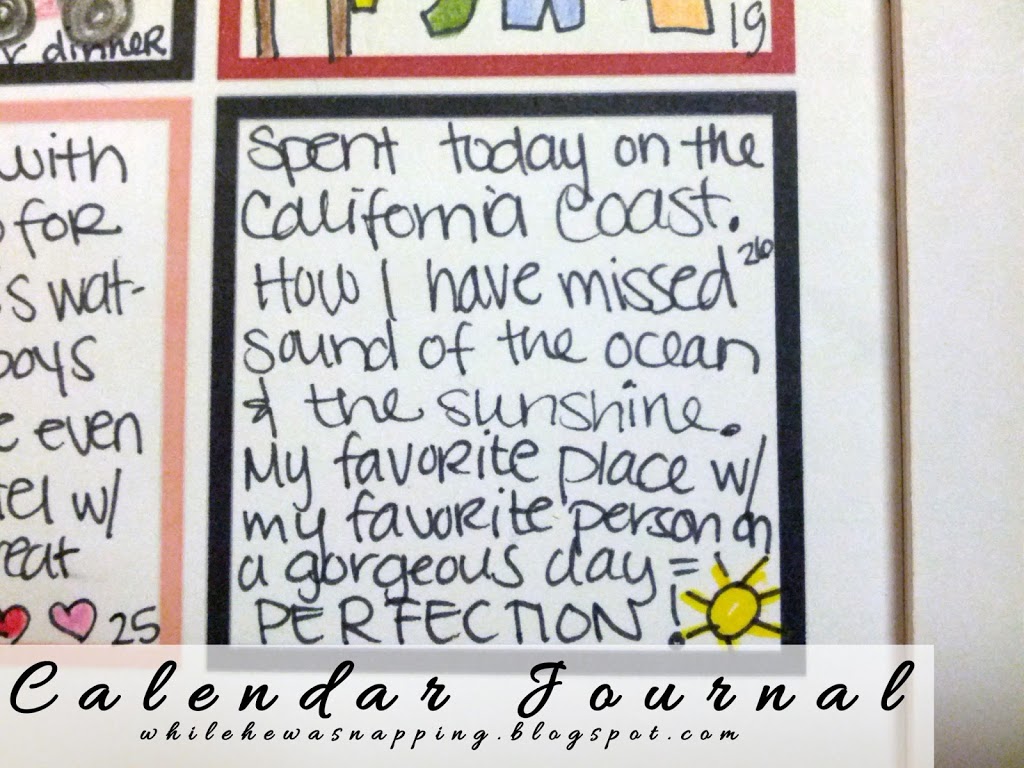 r dinner
19
with
for
s wat-
boys
e even
tel w/
reat
25
Spent today on the
California Coast.
26
How I have missed
sound of the ocean
& the sunshine.
My favorite place w/
my favorite person on
a gorgeous day =
PERFECTION!
Calendar Journal
whilehewasnapping.blogspot.com